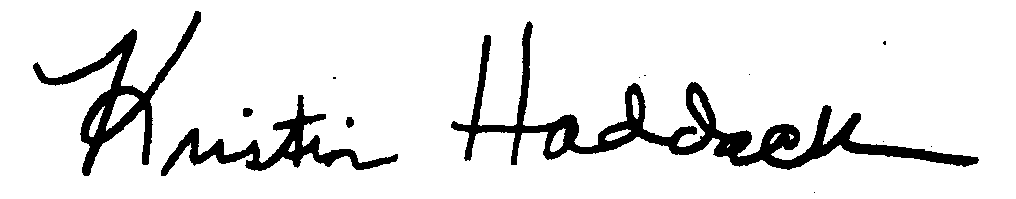 Kristin Haddock